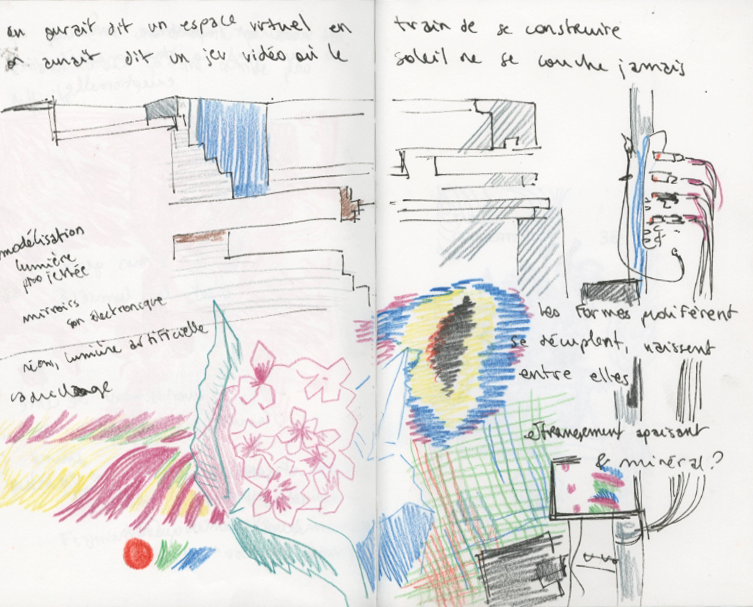 on aurait dit un espace virtuel en train de se construire
on aurait dit un jeu vidéo où le soleil ne se couche jamais
modélisation
lumière
projettée
mirroirs
son électronique
néons, lumière artificielle
cadrage
les formes prolifèrent
se décuplent, naissent
entre elles
étrangement apaisant
& minéral?